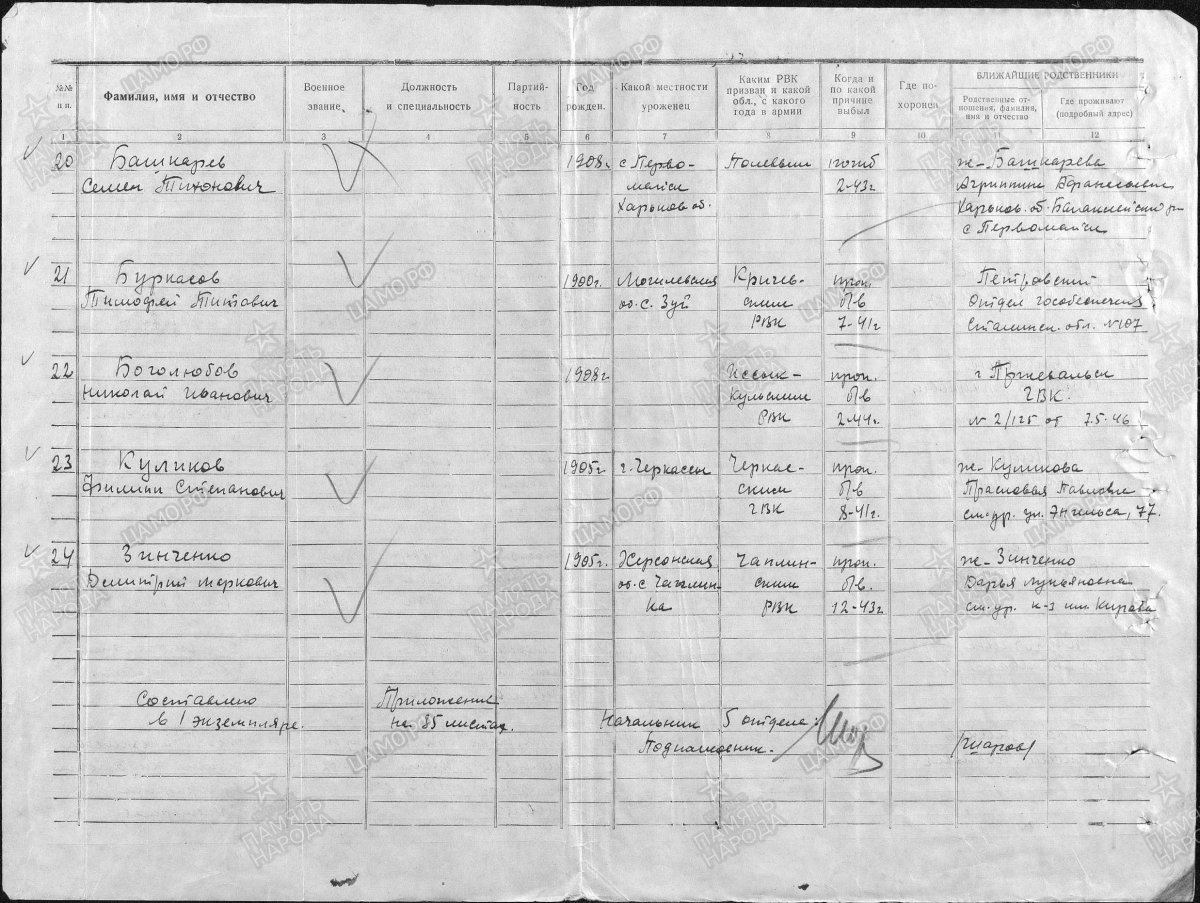 №№ п.п. Фамилия, имя и отчество Военное звание Должность и специальность Партий- ность Год рожден. Какой местности уроженец Каким РВК призван и какой обл., с какого года в армии Когда и по какой причине выбыл Где по- хоронен БЛИЖАЙШИЕ РОДСТВЕННИКИ
Родственные от- ношения, фамилия, имя и отчество Где проживают (подробный адрес)
1 2 3 4 5 6 7 8 9 10 11 12
20 Башкарев 1908г. с Перво- Полевым погиб ж- Башкарева
Семен Тихонович майск 2-43г
Харьков об. Харьков. об.
с Первомайск
21 Буркасов 1900г. Могилевская Кричев- проп. Петровский
Тимофей Титович об. с. ским б/в Отдел гособеспечения
РВК 7-41г Сталинск. обл. №107
22 Боголюбов 1908г Иссык- проп. г Пржевальск
Николай Иванович Кульским б/в ГВК.
РВК 2-44г. № 2/125 от 7.5.46
23 Куликов 1905г г. Черкассы Черкас- проп. ж- Куликова
Филипп Степанович ским б/в
ГВК 8-41г. см. ул. Энгельса, 77.
24 Зинченко 1905г. Херсонская Чаплин- проп. ж- Зинченко
Дмитрий Маркович об. с Чаплин- ским б/в. Дарья Лукьяновна
ка РВК 12-43г к-з им. Кирова
Составлено Приложение
в 1 экземпляре. на 85 листах. Начальник 5 отдела:
Подполковник. /Шаров/
ЦАМО.РФ
ПАМЯТЬ НАРОДА